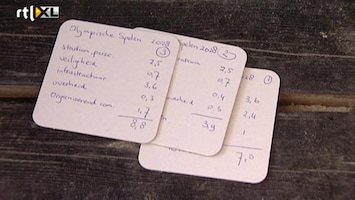 rtl XL
Olympische Spelen 2028
③
stadium, perso
veiligheid 2,5
infrastructuur 0,7
overheid 3,6
Organiserend com. 0,3
1,7
8,8
Spelen 2028 ②
2,5
0,7
0,4
0,3
3,9
28 ①
3,6
2,4
1
7,0